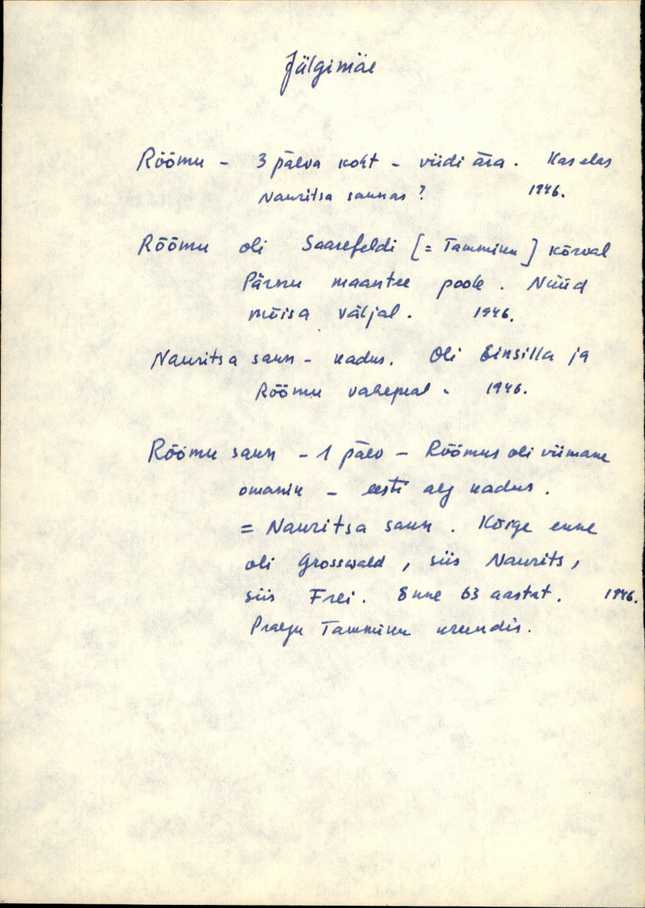 Jälgimäe
Rõõmu – 3 päeva koht – viidi ära. Kas elas
Nauritsa saunas? 1946.
Rõõmu oli Saarefeldi [= Tamminu] kõrval
Pärnu maantee poole. Nüüd
mõisa väljal. 1946.
Nauritsa saun – kadus. Oli Einsilla ja
Rõõmu vahepeal. 1946.
Rõõmu saun – 1 päev – Rõõmus oli viimane
omanik – eesti aeg kadus.
= Nauritsa saun. Kõige enne
oli Grosswald, siis Naurits,
siis Frei. Enne 63 aastat. 1946.
Praegu Tamminu krundis.